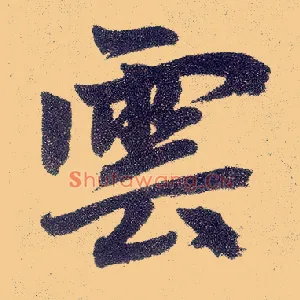 雲
Shufawang.cn